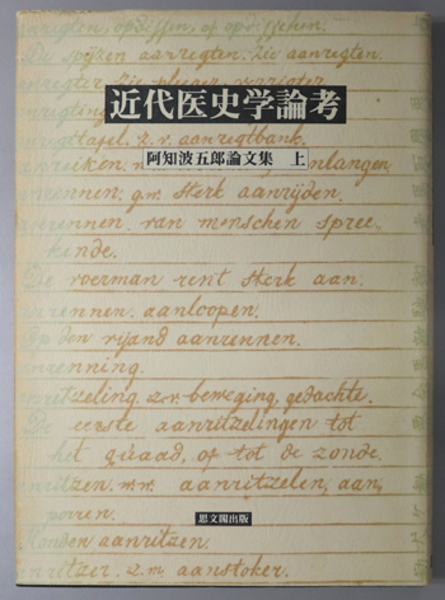 aanregten, opdissen, of opdisschen.
De spijzen aanregten. zie aanregten.
近代医史学論考
阿知波五郎論文集 上
aanregttafel. z.v. aanregtbank.
aanrennen. g.w. sterk aanrijden.
aanrennen. van menschen spree_
kende.
De voerman rent sterk aan.
aanrennen. aanloopen.
Op den vijand aanrennen.
aanrenning.
aanritzeling. z.v. beweging, gedachte.
De eerste aanritzelingen tot
het quaad, of tot de zonde.
aanritzen. w.w. aanritzelen, aan_
porren.
思文閣出版
Honden aanritzen.
aanritzer. z.m. aanstoker.